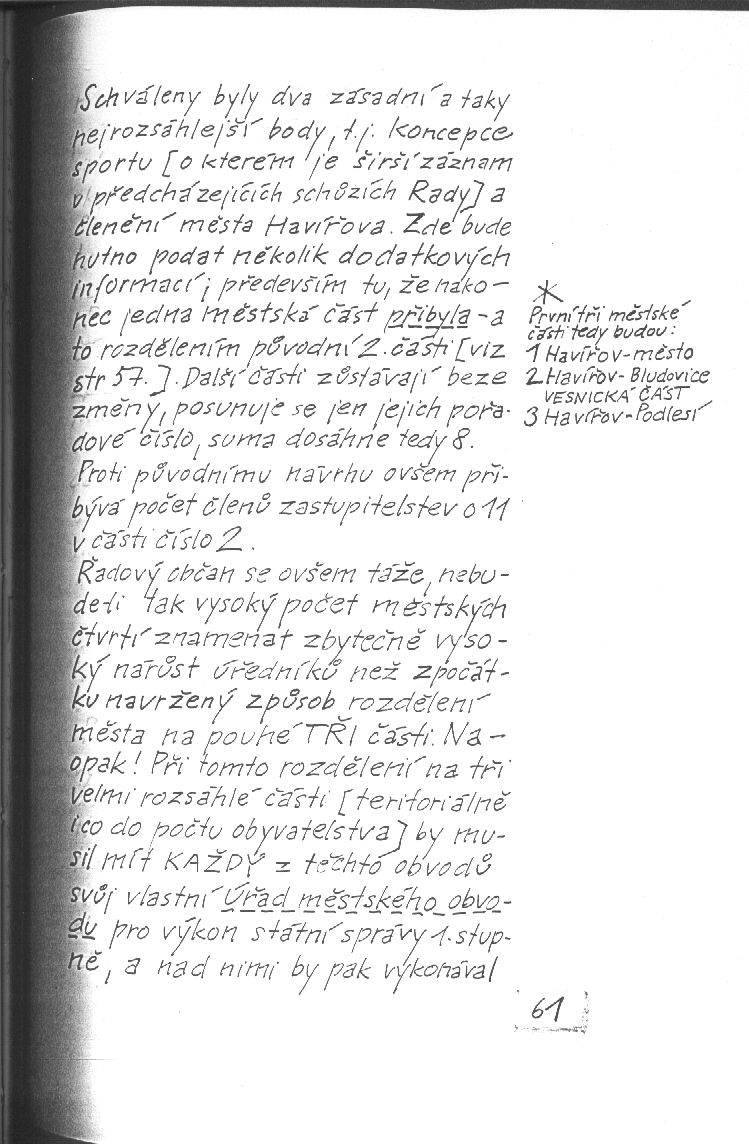 Schváleny byly dva zásadní a taky
nejrozsáhlejší body, t.j. koncepce
sportu [o kterém je širší záznam
v předcházejících schůzích Rady] a
členění města Havířova. Zde bude
hutno podat několik dodatkových
informací; především tu, že nako-
nec jedna městská část přibyla - a
to rozdělením původní 2. části [viz
str 57.]. Další části zůstávají beze
změny, posunuje se jen jejich pořa-
dové číslo, suma dosáhne tedy 8.
Proti původnímu návrhu ovšem při-
bývá počet členů zastupitelstev o 11
v části číslo 2.
Řadový občan se ovšem táže, nebu-
de-li tak vysoký počet městských
čtvrtí znamenat zbytečně vyso-
ký nárůst úředníků než zpočát-
ku navržený způsob rozdělení
města na pouhé TŘI části. Na-
opak! Při tomto rozdělení na tři
velmi rozsáhlé části [teritoriálně
i co do počtu obyvatelstva] by mu-
sil mít KAŽDÝ z těchto obvodů
svůj vlastní Úřad městského obvo-
du pro výkon státní správy 1. stup-
ně, a nad nimi by pak vykonával
*
První tři městské
části tedy budou:
1 Havířov-město
2 Havířov-Bludovice
VESNICKÁ ČÁST
3 Havířov-Podlesí
61